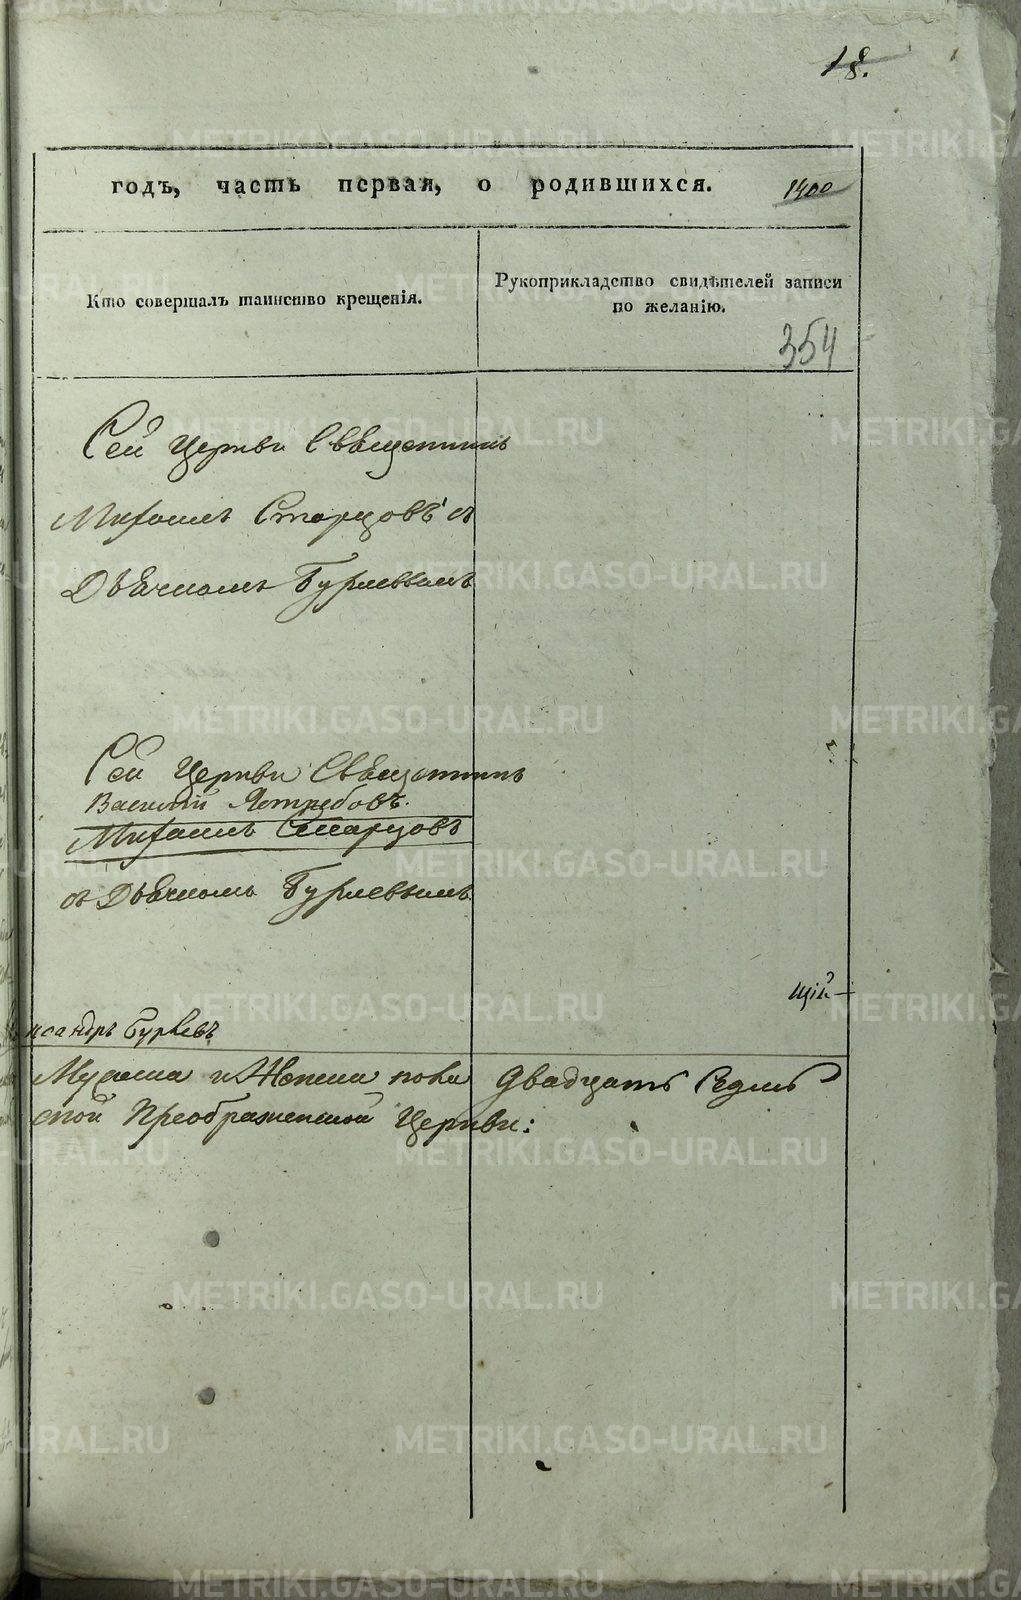 18.
годъ, часть первая, о родившихся. 1400
Кто совершалъ таинство крещенія.
Рукоприкладство свидѣтелей записи
по желанію.
354
Сей Церкви Священникъ
Михаилъ Старцовъ съ
Дьячкомъ Бурлевымъ
Сей Церкви Священникъ
Василій Ястребовъ.
Михаилъ Старцовъ
съ Дьячкомъ Бурлевымъ
щій
ксандръ
Мужеска и Женска пола Двадцать Седмь
ской Преображенской Церкви:
METRIKI.GASO-URAL.RU